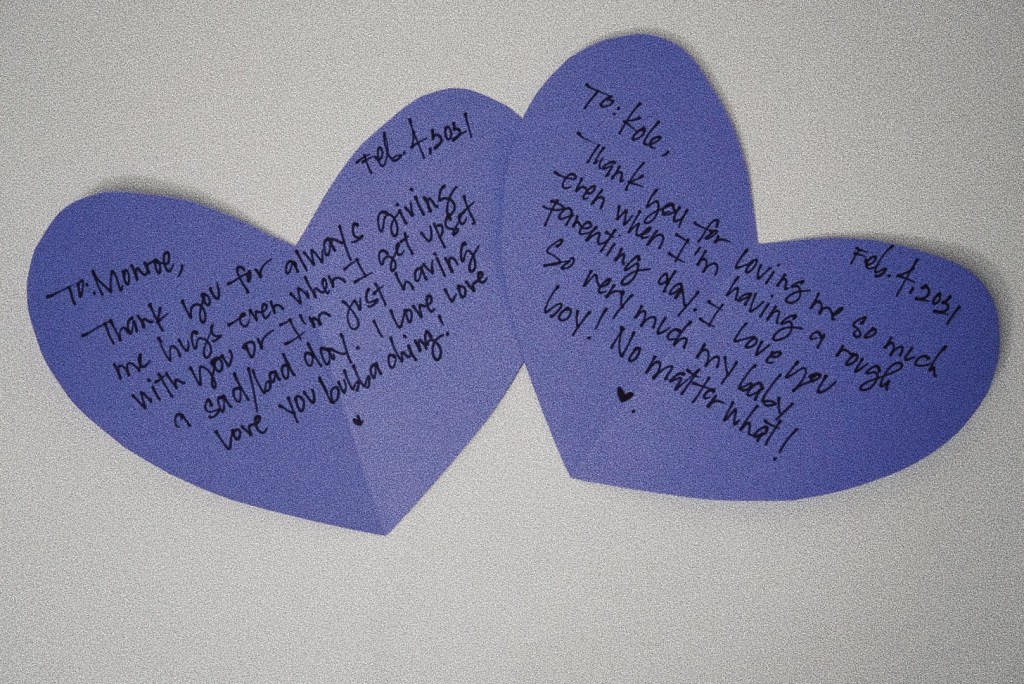 Feb. 4, 2021
To: Monroe,
Thank you for always giving
me hugs even when I get upset
with you or I'm just having
a sad/bad day. I love love
love you bubba ching!
To: Kole,
Feb. 4, 2021
Thank you for loving me so much
even when I'm having a rough
parenting day. I love you
so very much my baby
boy! No matter what!